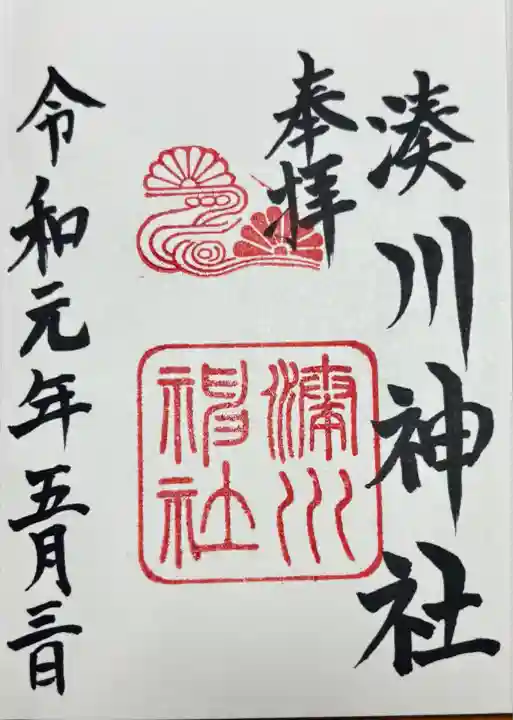 湊川神社
奉拝
湊川
神社
令和元年五月三日